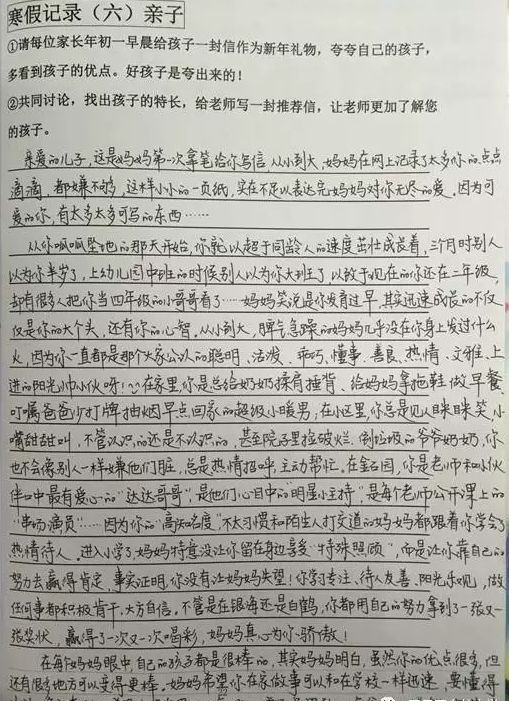 寒假记录（六）亲子
①请每位家长年初一早晨给孩子一封信作为新年礼物，夸夸自己的孩子，
多看到孩子的优点。好孩子是夸出来的！
②共同讨论，找出孩子的特长，给老师写一封推荐信，让老师更加了解您
的孩子。
亲爱的儿子，这是妈妈第一次拿笔给你写信，从小到大，妈妈在网上记录了太多你的点点
滴滴，都嫌不够，这样小小的一页纸，实在不足以表达完妈妈对你无尽的爱，因为可
爱的你，有太多太多可写的东西……
从你呱呱坠地的那天开始，你就以超于同龄人的速度茁壮成长着，三个月时别人
以为你半岁了，上幼儿园中班的时候别人以为你大班了，以致于现在的你还在二年级，
却有很多人把你当四年级的小哥哥看了……妈妈笑说是你发育过早，其实迅速成长的不仅
仅是你的大个头，还有你的心智。从小到大，脾气急躁的妈妈几乎没在你身上发过什么
火，因为你一直都是那个大家公认的聪明、活发、乖巧、懂事、善良、热情、文雅、上
进的阳光帅小伙呀！~~在家里，你是总给奶奶揉肩捶背、给妈妈拿拖鞋做早餐、
叮嘱爸爸少打牌抽烟早点回家的超级小暖男；在小区里，你总是见人眯眯笑，小
嘴甜甜叫，不管认识的还是不认识的，甚至院子里捡破烂、倒垃圾的爷爷奶奶，你
也不会像别人一样嫌他们脏，总是热情招呼，主动帮忙。在金石园，你是老师和小伙
伴口中最有爱心的“达达哥哥”，是他们心目中的“明星小主持”，是每个老师公开课上的
“串场演员”……因为你的“高知名度”，不太习惯和陌生人打交道的妈妈都跟着你学会了
热情待人。进入小学了，妈妈特意没让你留在身边享受“特殊照顾”，而是让你靠自己的
努力去赢得肯定，事实证明，你没有让妈妈失望！你学习专注、待人友善、阳光乐观，做
任何事都积极肯干，大方自信。不管是在银海还是白鹤，你都用自己的努力拿到了一张又一
张奖状，赢得了一次又一次喝彩，妈妈真心为你骄傲！
在每个妈妈眼中，自己的孩子都是很棒的，其实妈妈明白，虽然你的优点很多，但
还有很多地方可以变得更棒。妈妈希望你在家做事可以和在学校一样迅速，要懂得